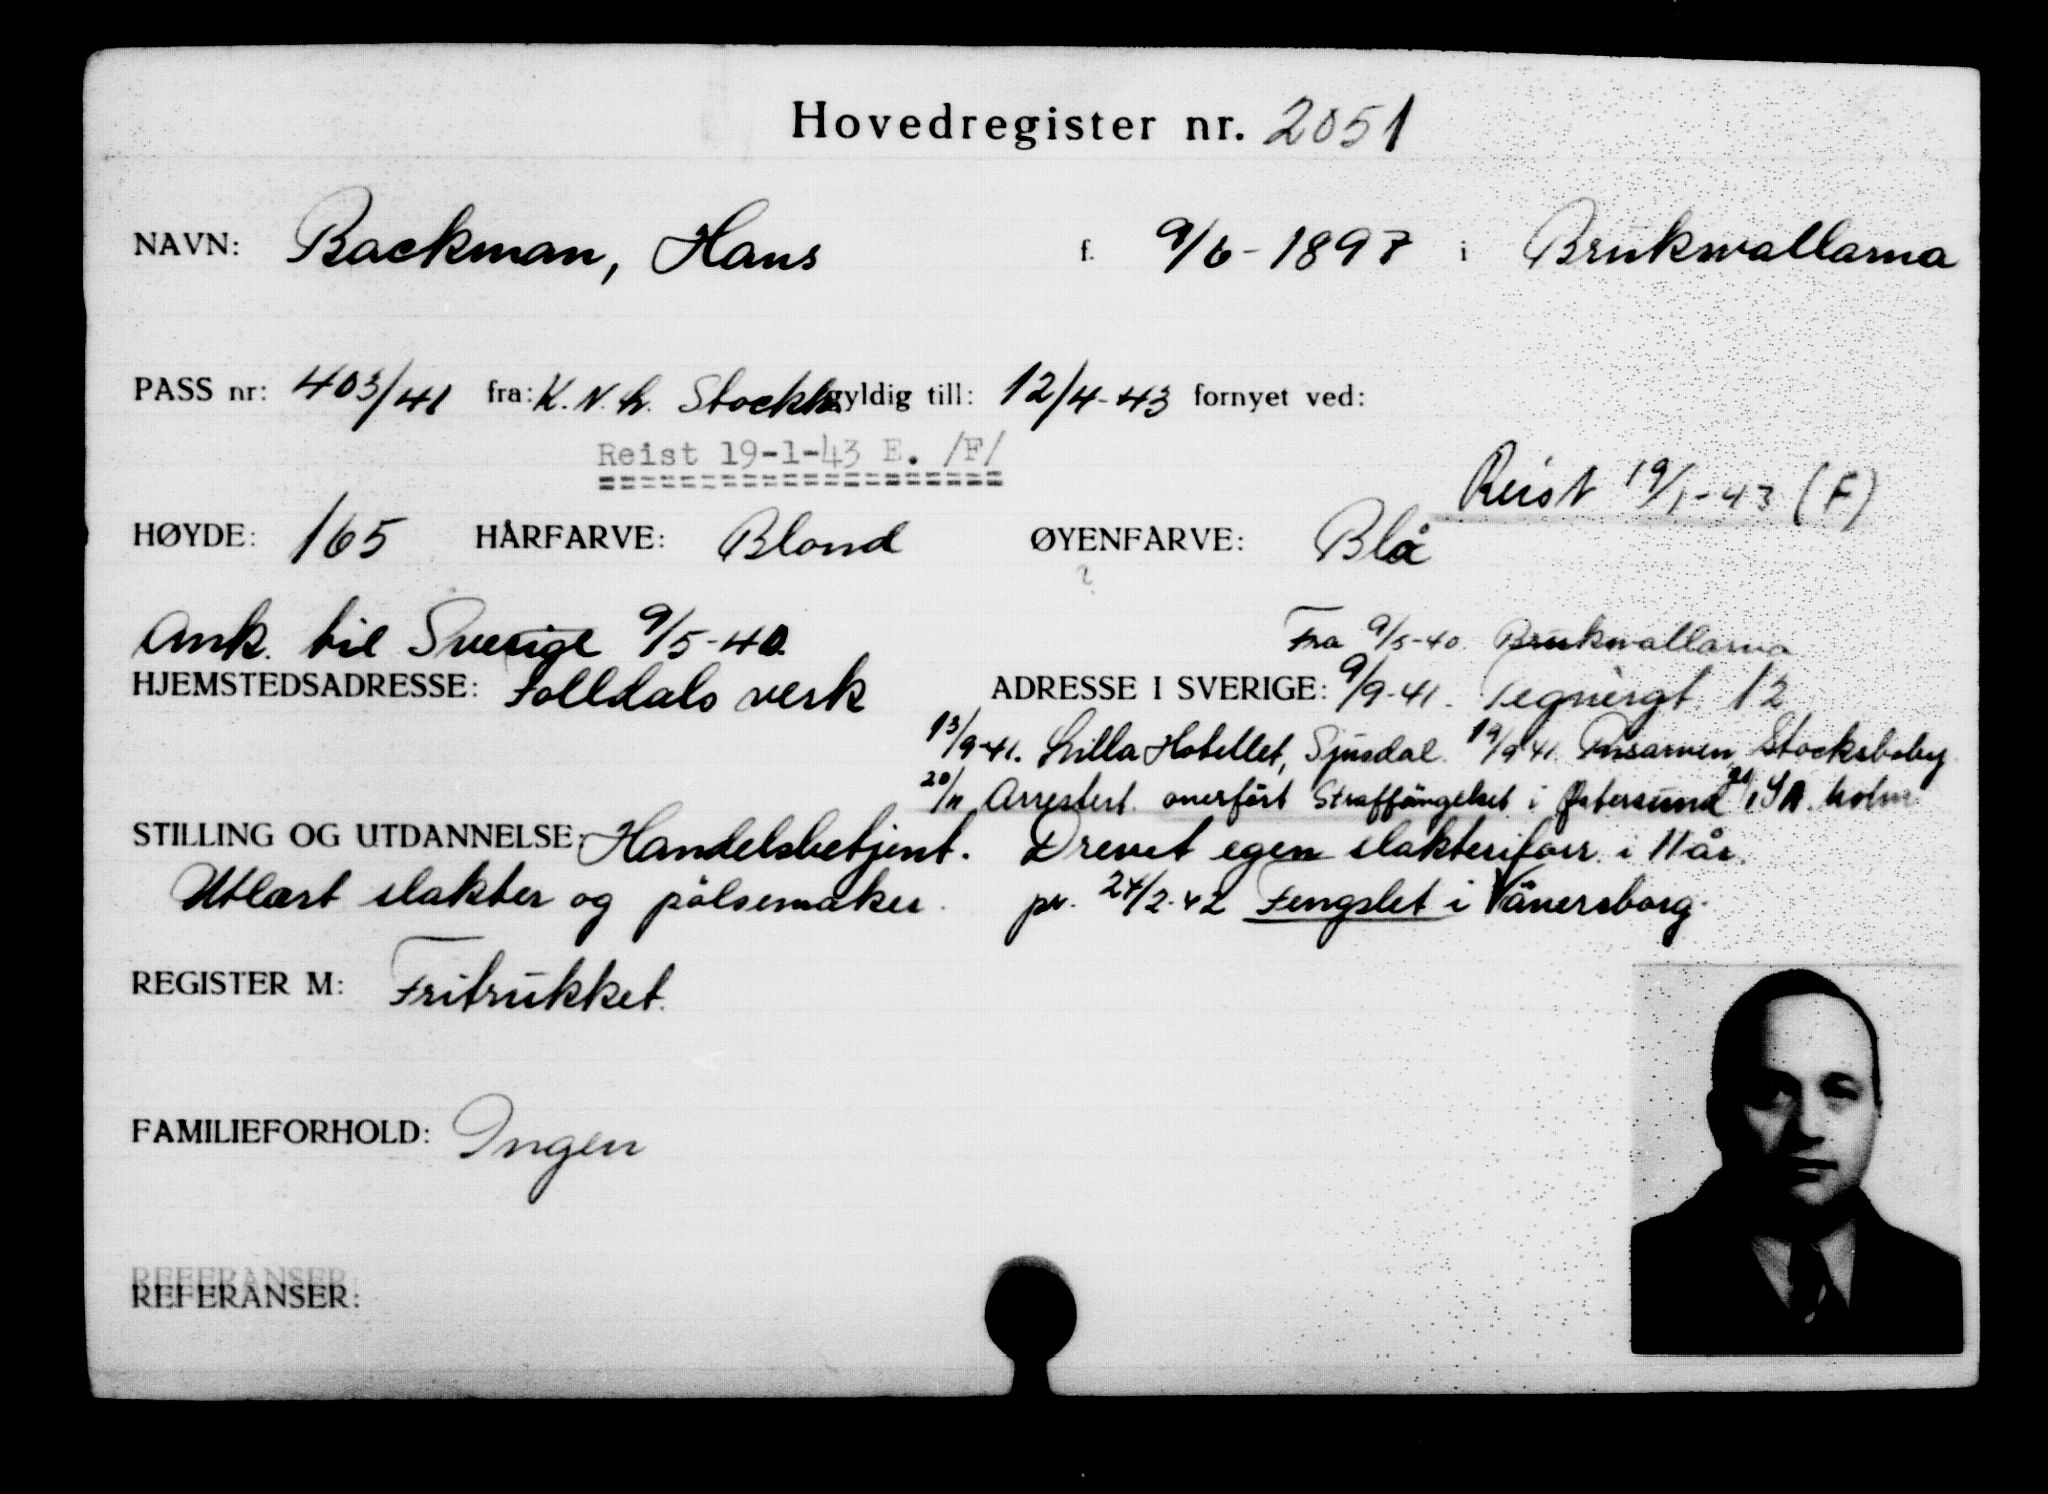 Hovedregister nr. 2051
NAVN: Backman, Hans f. 9/6-1897 i Brukswallarna
PASS nr: 403/41 fra: K.N.L. Stockh. gyldig till: 12/4-43 fornyet ved:
Reist 19-1-43 E. /F/
Reist 19/1-43 (F)
HØYDE: 165 HÅRFARVE: Blond ØYENFARVE: Blå
?
Ank. til Sverige 9/5-40. Fra 9/5-40. Brukswallarna
HJEMSTEDSADRESSE: Folldals verk ADRESSE I SVERIGE: 9/9-41. Tegnérgt. 12
13/9-41. Lilla Hotellet, Ljusdal. 19/9 41. Stocksboby
Arrestert. overført Straffängelset i Østersund
STILLING OG UTDANNELSE: Handelsbetjent. Drevet egen slakteriforr. i 11 år.
Utlært slakter og pølsemaker. pr. 24/2-42 Fengslet i Vänersborg.
REGISTER M: Fritrukket.
FAMILIEFORHOLD: Ingen
REFERANSER:
REFERANSER: